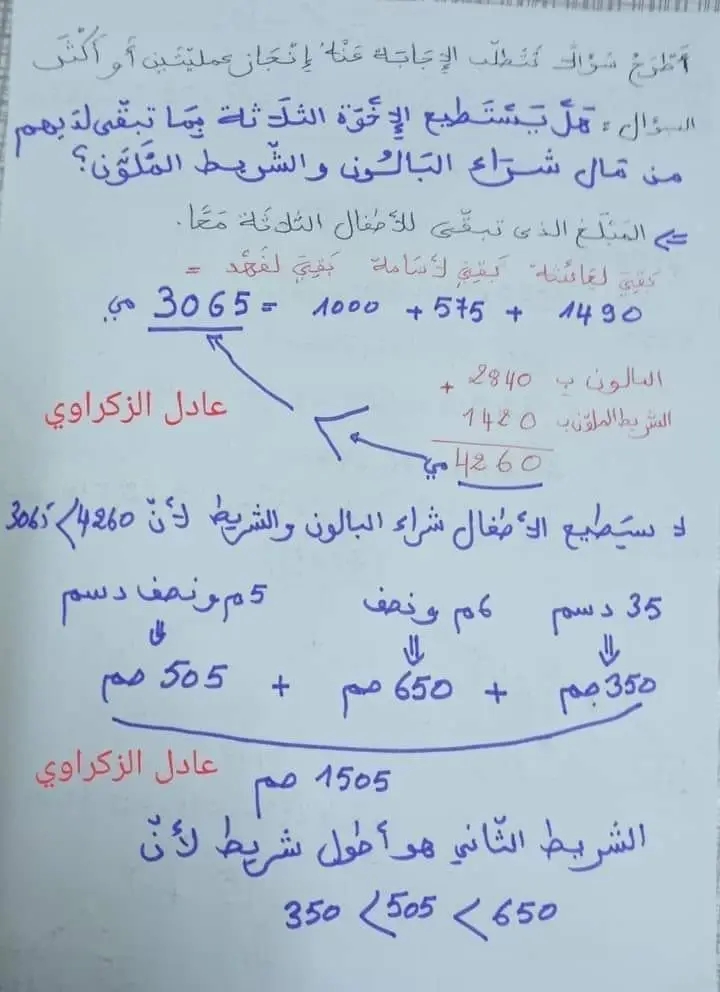 أَطْرَحُ سُؤَالًا تَتَطَلَّبُ الإِجَابَةُ عَنْهُ إِنْجَازَ عَمَلِيَّتَيْنِ أَوْ أَكْثَرَ
السؤال: هَلْ يَسْتَطِيع الإِخْوَة الثلَاثة بِمَا تبقّى لديهم
من مَال شِرَاء البَالُون والشّريط المُلَوَّن؟
⇐ المَبْلَغ الذي تبقّى للأطفال الثلاثة مَعًا.
بَقِيَ لِعَائشة بَقِيَ لأسامة بَقِيَ لفَهْد =
1490 + 575 + 1000 = 3065 مي
البالون ب 2840 +
الشريط الملوّن ب 1420
عادل الزكراوي
4260 مي
لا يستطيع الأطفال شراء البالون والشريط لأنّ 4260 > 3065
35 دسم 6م ونصف 5م ونصف دسم
⇓ ⇓ ⇓
350 صم + 650 صم + 505 صم
عادل الزكراوي
1505 صم
الشريط الثّاني هو أطول شريط لأنّ
650 > 505 > 350